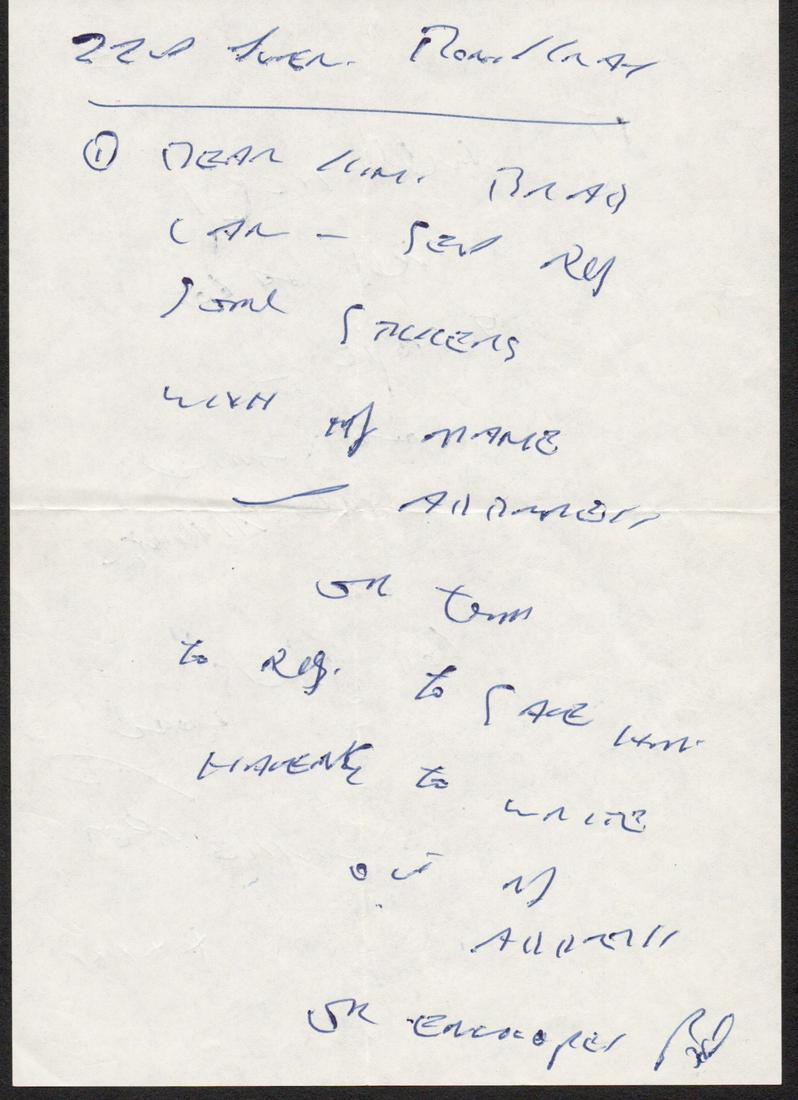 Ron Kray
① DEAR KIM. BRAD
CAN – SEND REG
SOME STICKERS
WITH MY NAME
✓ ADDRESS
ON THEM
TO REG. TO SAVE HIM
HAVEING TO WRITE
OUT MY
ADDRESS
ON ENVELOPES